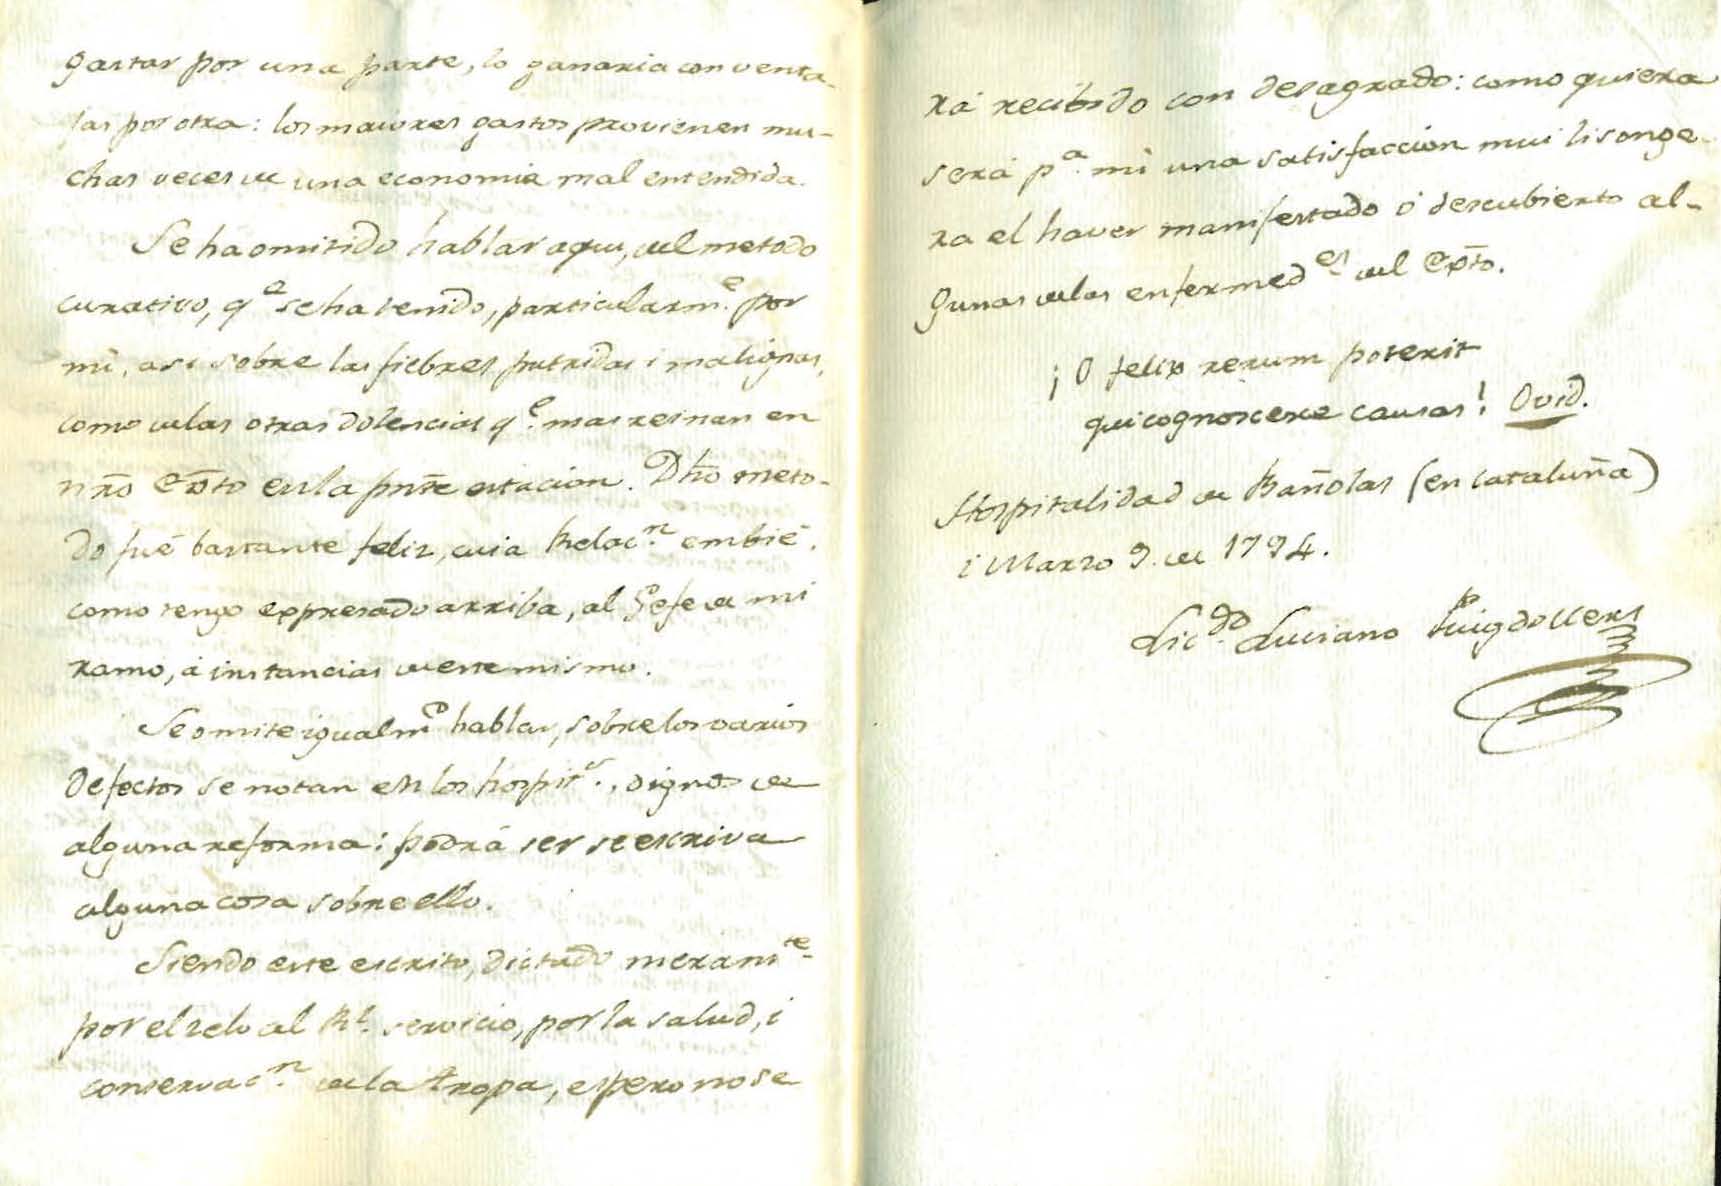 gastar por una parte, lo ganaria con venta-
jas por otra: los maiores gastos provienen mu-
chas veces de una economia mal entendida.
Se ha omitido hablar aqui, del metodo
curativo, qe. se ha tenido, particularme. por
mi, asi sobre las fiebres putridas i malignas,
como de las otras dolencias qe. mas reinan en
nro Exto en la pnte estacion. Dho meto-
do fué bastante feliz, cuia Relacn. embié,
como tengo expresado arriba, al Gefe de mi
ramo, á instancias de este mismo.
Se omite igualmte hablar, sobre los varios
defectos se notan en los hospits., dignos de
alguna reforma: podrá ser se escriva
alguna cosa sobre ello.
Siendo este escrito, dictado meramte.
por el zelo al Rl. servicio, por la salud, i
conservacn. de la tropa, espero no se
rá recibido con desagrado: como quiera
será pa. mi una satisfaccion mui lisonge-
ra el haver manifestado ó descubierto al-
gunas de las enfermedes del Exto.
¡O felix rerum poterit
qui cognoscere causas! Ovid.
Hospitalidad de Bañolas (en Cataluña)
i Marzo 9. de 1794.
Licdo. Luciano Puigdollers